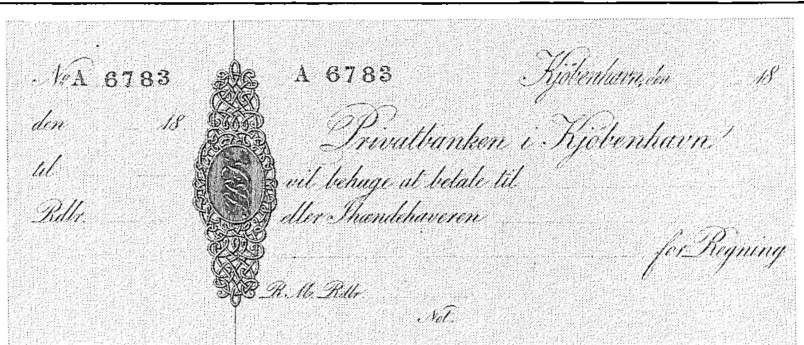 No. A 6783
den 18
til
Rdlr.
A 6783
Kjöbenhavn, den 18
Privatbanken i Kjöbenhavn
vil behage at betale til
eller Ihændehaveren
for Regning
R. M. Rdlr.
Not.